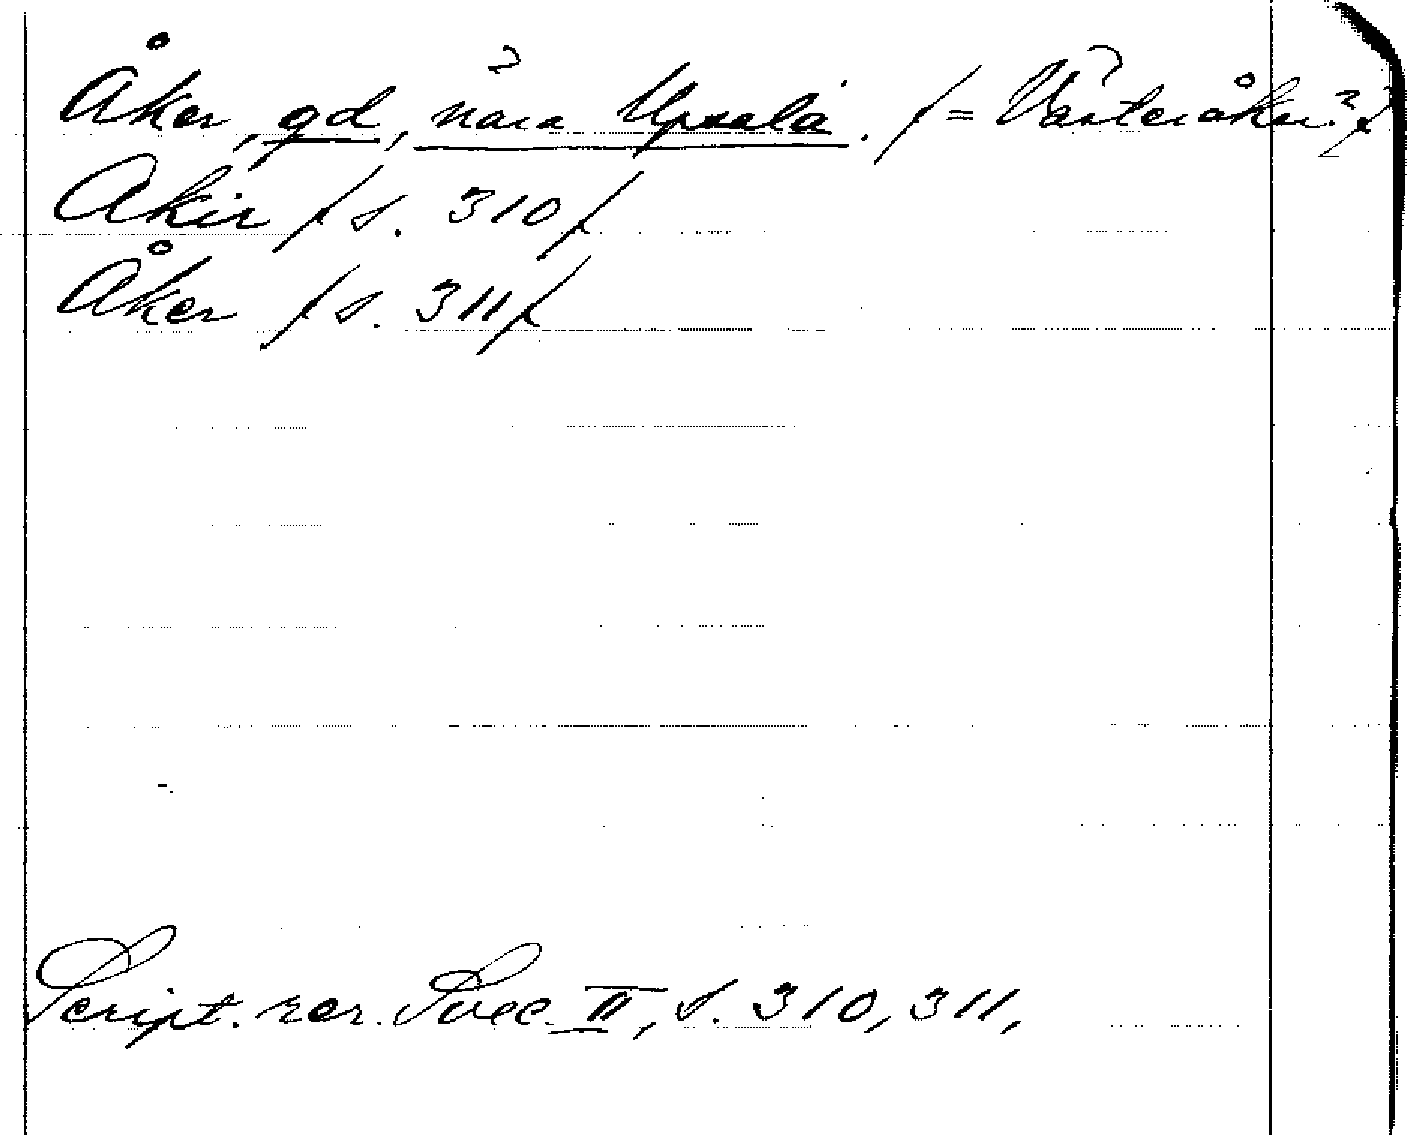 Åker, gd, nära Upsala. /= Västeråker?/
Akir /s. 310/
Åker /s. 311/
Script. rer. Svec. II, s. 310, 311,